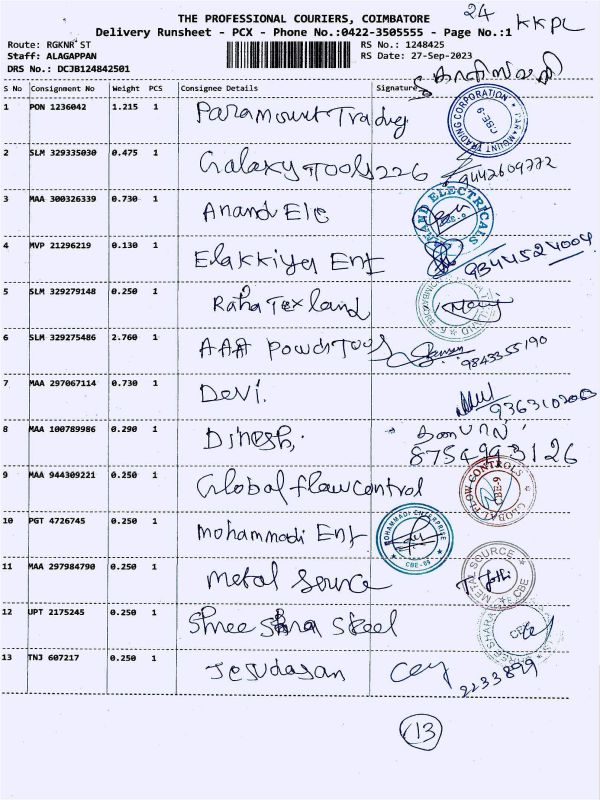 THE PROFESSIONAL COURIERS, COIMBATORE
24
KKPL
Delivery Runsheet - PCX - Phone No.:0422-3505555 - Page No.:1
Route: RGKNR ST
RS No.: 1248425
Staff: ALAGAPPAN
RS Date: 27-Sep-2023
DRS No.: DCJB124842501
S No Consignment No Weight PCS Consignee Details Signature
1 PON 1236042 1.215 1 Paramount Trading
PARAMOUNT TRADING CORPORATION CBE-9
2 SLM 329335030 0.475 1 Galaxy Tools 226 9442609772
3 MAA 300326339 0.730 1 Anand Ele
ANAND ELECTRICALS
4 MVP 21296219 0.130 1 Elakkiya Ent 9344524004
5 SLM 329279148 0.250 1 Raha Tex land
6 SLM 329275486 2.760 1 AAA Power Tools 9843355190
7 MAA 297067114 0.730 1 Devi.
8 MAA 100789986 0.290 1 Dinesh.
9 MAA 944309221 0.250 1 Global flow control
GLOBAL FLOW CONTROLS CBE-9
10 PGT 4726745 0.250 1 Mohammadi Ent
MOHAMMADI ENTERPRISE CBE-09
11 MAA 297984790 0.250 1 Metal Source
METAL SOURCE CBE
12 UPT 2175245 0.250 1 Shree Shra Steel
13 TNJ 607217 0.250 1 Jesudasan
2233899
13